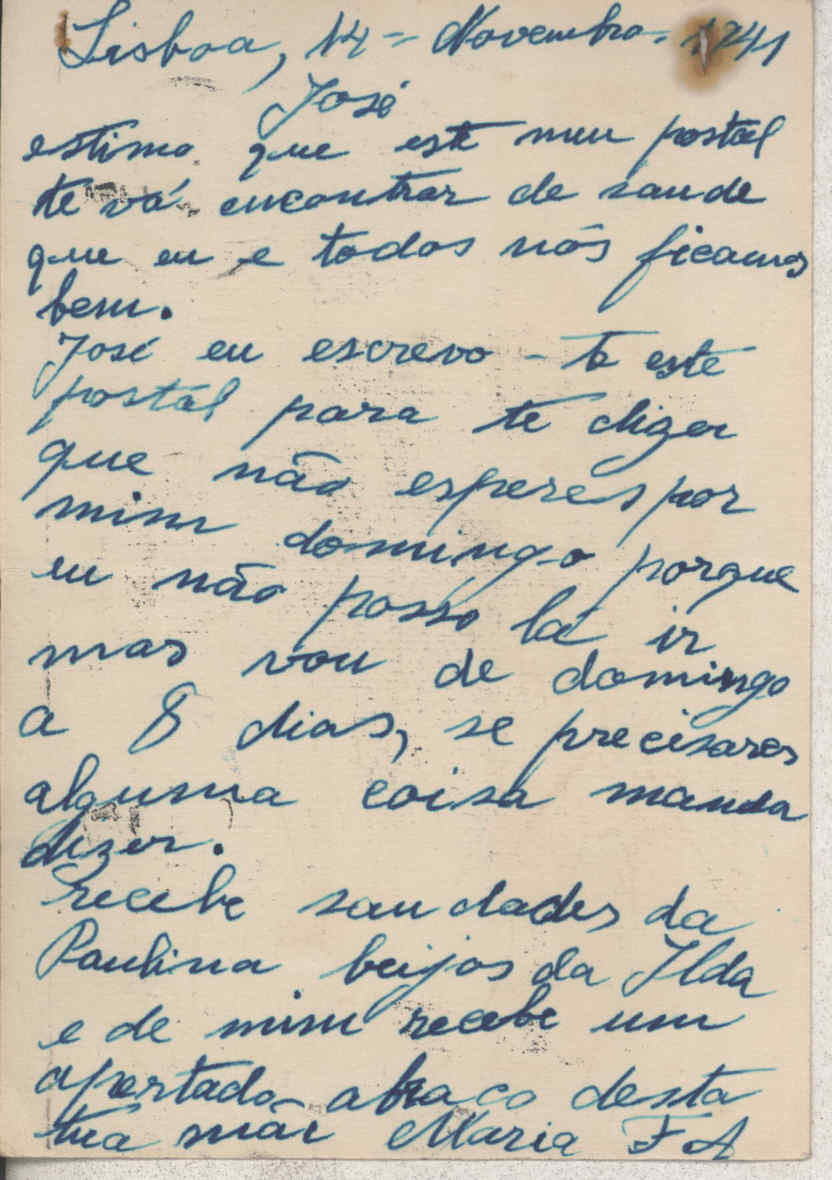 Lisboa, 14 = Novembro = 1941
José
estimo que este meu postal
te vá encontrar de saude
que eu e todos nós ficamos
bem.
José eu escrevo-te este
postál para te dizer
que não esperes por
mim domingo porque
eu não posso lá ir
mas vou de domingo
a 8 dias, se precisares
alguma coisa manda
dizer.
recebe saudades da
Paulina beijos da Ilda
e de mim recebe um
apertado abraço desta
tua mãi Maria F A